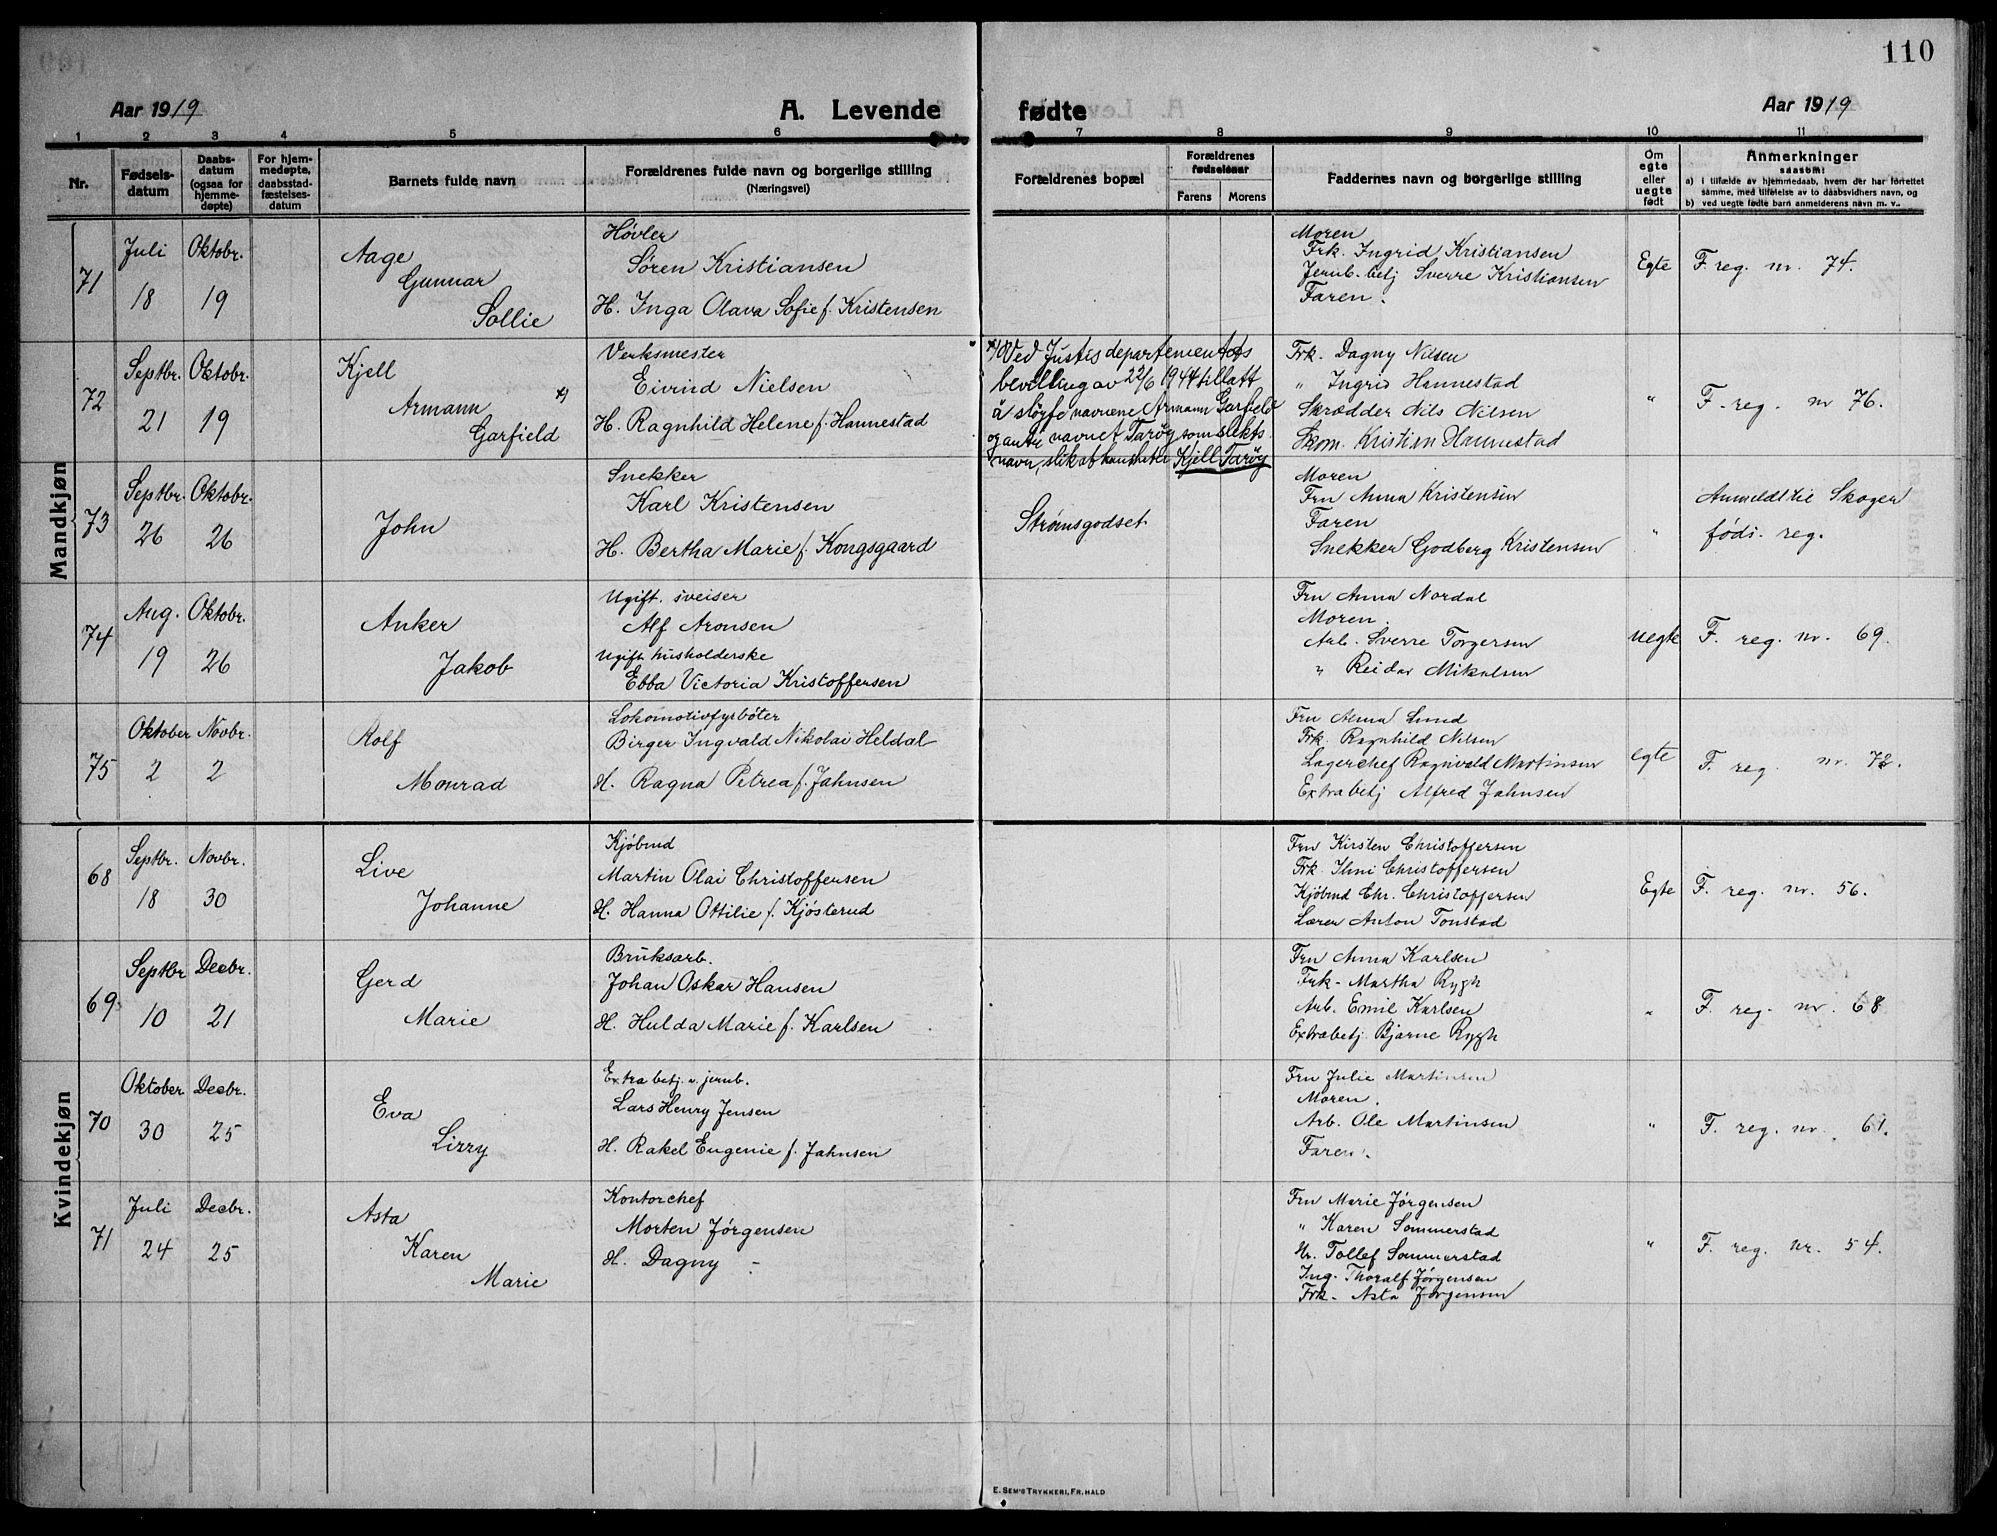 110
Aar 1919
A. Levende
fødte
Aar 1919
1 2 3 4 5 6 7 8 9 10 11
Nr.
Fødsels-
datum
Daabs-
datum
(ogsaa for
hjemme-
døpte)
For hjem-
medøpte,
daabsstad-
fæstelses-
datum
Barnets fulde navn
Forældrenes fulde navn og borgerlige stilling
(Næringsvei)
Forældrenes bopæl
Forældrenes
fødselsaar
Farens Morens
Faddernes navn og borgerlige stilling
Om
egte
eller
uegte
født
Anmerkninger
saasom:
a) i tilfælde av hjemmedaab, hvem der har forrettet
samme, med tilføielse av to daabsvidners navn, og
b) ved uegte fødte barn anmelderens navn m. v..
Mandkjøn
71
Juli
18
Oktobr.
19
Aage
Gunnar
Sollie
Høvler
Søren Kristiansen
H. Inga Olava Sofie f. Kristensen
Moren
Frk. Ingrid Kristiansen
Jernb. betj Sverre Kristiansen
Faren.
Egte
F. reg. nr. 74.
72
Septbr.
21
Oktobr.
19
Kjell
Armann *)
Garfield
Verksmester
Eivind Nielsen
H. Ragnhild Helene f. Hannestad
*) Ved Justisdepartementets
bevilling av 22/6 1944 tillatt
å sløyfe navnene Armann Garfield
og anta navnet Tarøy som slekts
navn, slik at han heter Kjell Tarøy
Frk. Dagny Nilsen
" Ingrid Hannestad
Skrædder Nils Nilsen
Skom. Kristian Hannestad
"
F. reg. nr 76.
73
Septbr.
26
Oktobr.
26
John
Snekker
Karl Kristensen
H. Bertha Marie f. Kongsgaard
Strømsgodset
Moren
Fru Anna Kristensen
Faren
Snekker Godberg Kristensen
"
Anmeldt til Skoger
føds. reg.
74
Aug.
19
Oktobr.
26
Anker
Jakob
Ugift. sveiser
Alf Aronsen
Ugift husholderske
Ebba Victoria Kristoffersen
Fru Anna Nordal
Moren.
Arb. Sverre Torgersen
" Reidar Mikalsen
uegte
F. reg. nr. 69.
75
Oktober
2
Novbr.
2
Rolf
Monrad
Lokomotivfyrbøter
Birger Ingvald Nikolai Heldal
H. Ragna Petrea f. Jahnsen
Fru Anna Lund
Frk. Ragnhild Nilsen
Lagerchef Ragnvald Martinsen
Extrabetj Alfred Jahnsen
egte
F. reg. nr. 72.
Kvindekjøn
68
Septbr.
18
Novbr.
30
Live
Johanne
Kjøbmd
Martin Olai Christoffersen
H. Hanna Ottilie f. Kjøsterud
Fru Kirsten Christoffersen
Frk. Christoffersen
Kjøbmd Chr. Christoffersen
Lærer Anton Tonstad
Egte
F. reg. nr. 56.
69
Septbr
10
Decbr.
21
Gerd
Marie
Bruksarb.
Johan Oskar Hansen
H. Hulda Marie f. Karlsen
Fru Anna Karlsen
Frk. Martha Rygh
Arb. Emil Karlsen
Extrabetj. Bjarne Rygh
"
F. reg. nr. 68
70
Oktober
30
Decbr.
25
Eva
Lizzy
Extra betj. v. jernb.
Lars Henry Jensen
H. Rakel Eugenie f. Jahnsen
Fru Julie Martinsen
Moren.
Arb. Ole Martinsen
Faren.
"
F. reg. nr. 61.
71
Juli
24
Decbr.
25
Asta
Karen
Marie
Kontorchef
Morten Jørgensen
H. Dagny -
Fru Marie Jørgensen
" Karen Sommerstad
Hr. Tollef Sommerstad
Ing. Thoralf Jørgensen
Frk. Asta Jørgensen
"
F. reg. nr. 54.
E. SEM'S TRYKKERI, FR. HALD